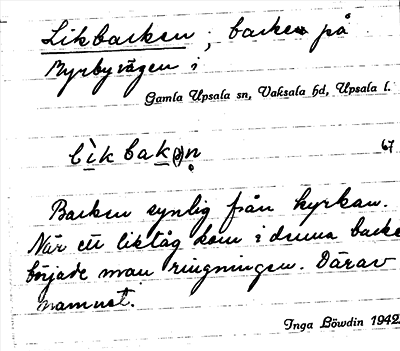 Likbacken ; backe på
Myrbyvägen i
Gamla Upsala sn, Vaksala hd, Upsala l.
lìkbak(ə)n̥
67
Backen synlig från kyrkan.
När ett liktåg kom i denna backe
började man ringningen. Därav
namnet.
Inga Löwdin 1942.